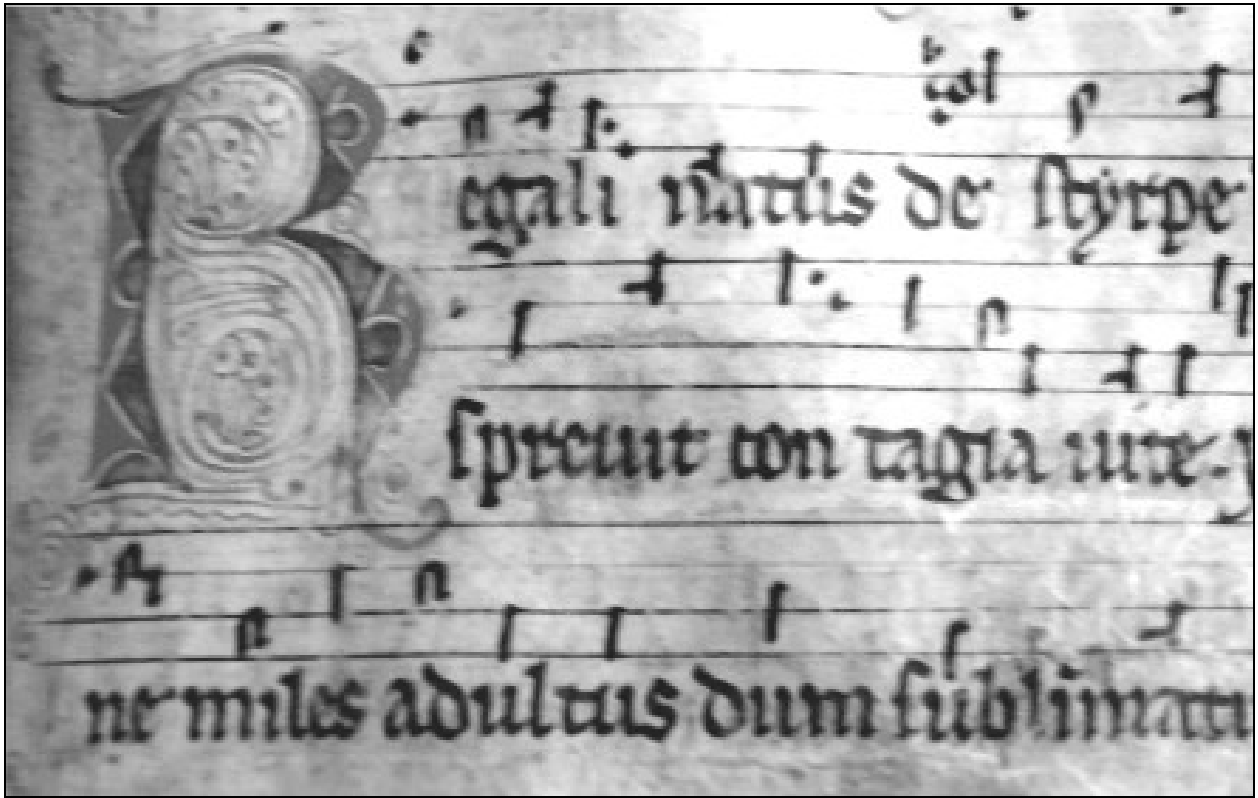 Regali natus de styrpe
spreuit con tagia uite.
ne miles adultus dum sublimati